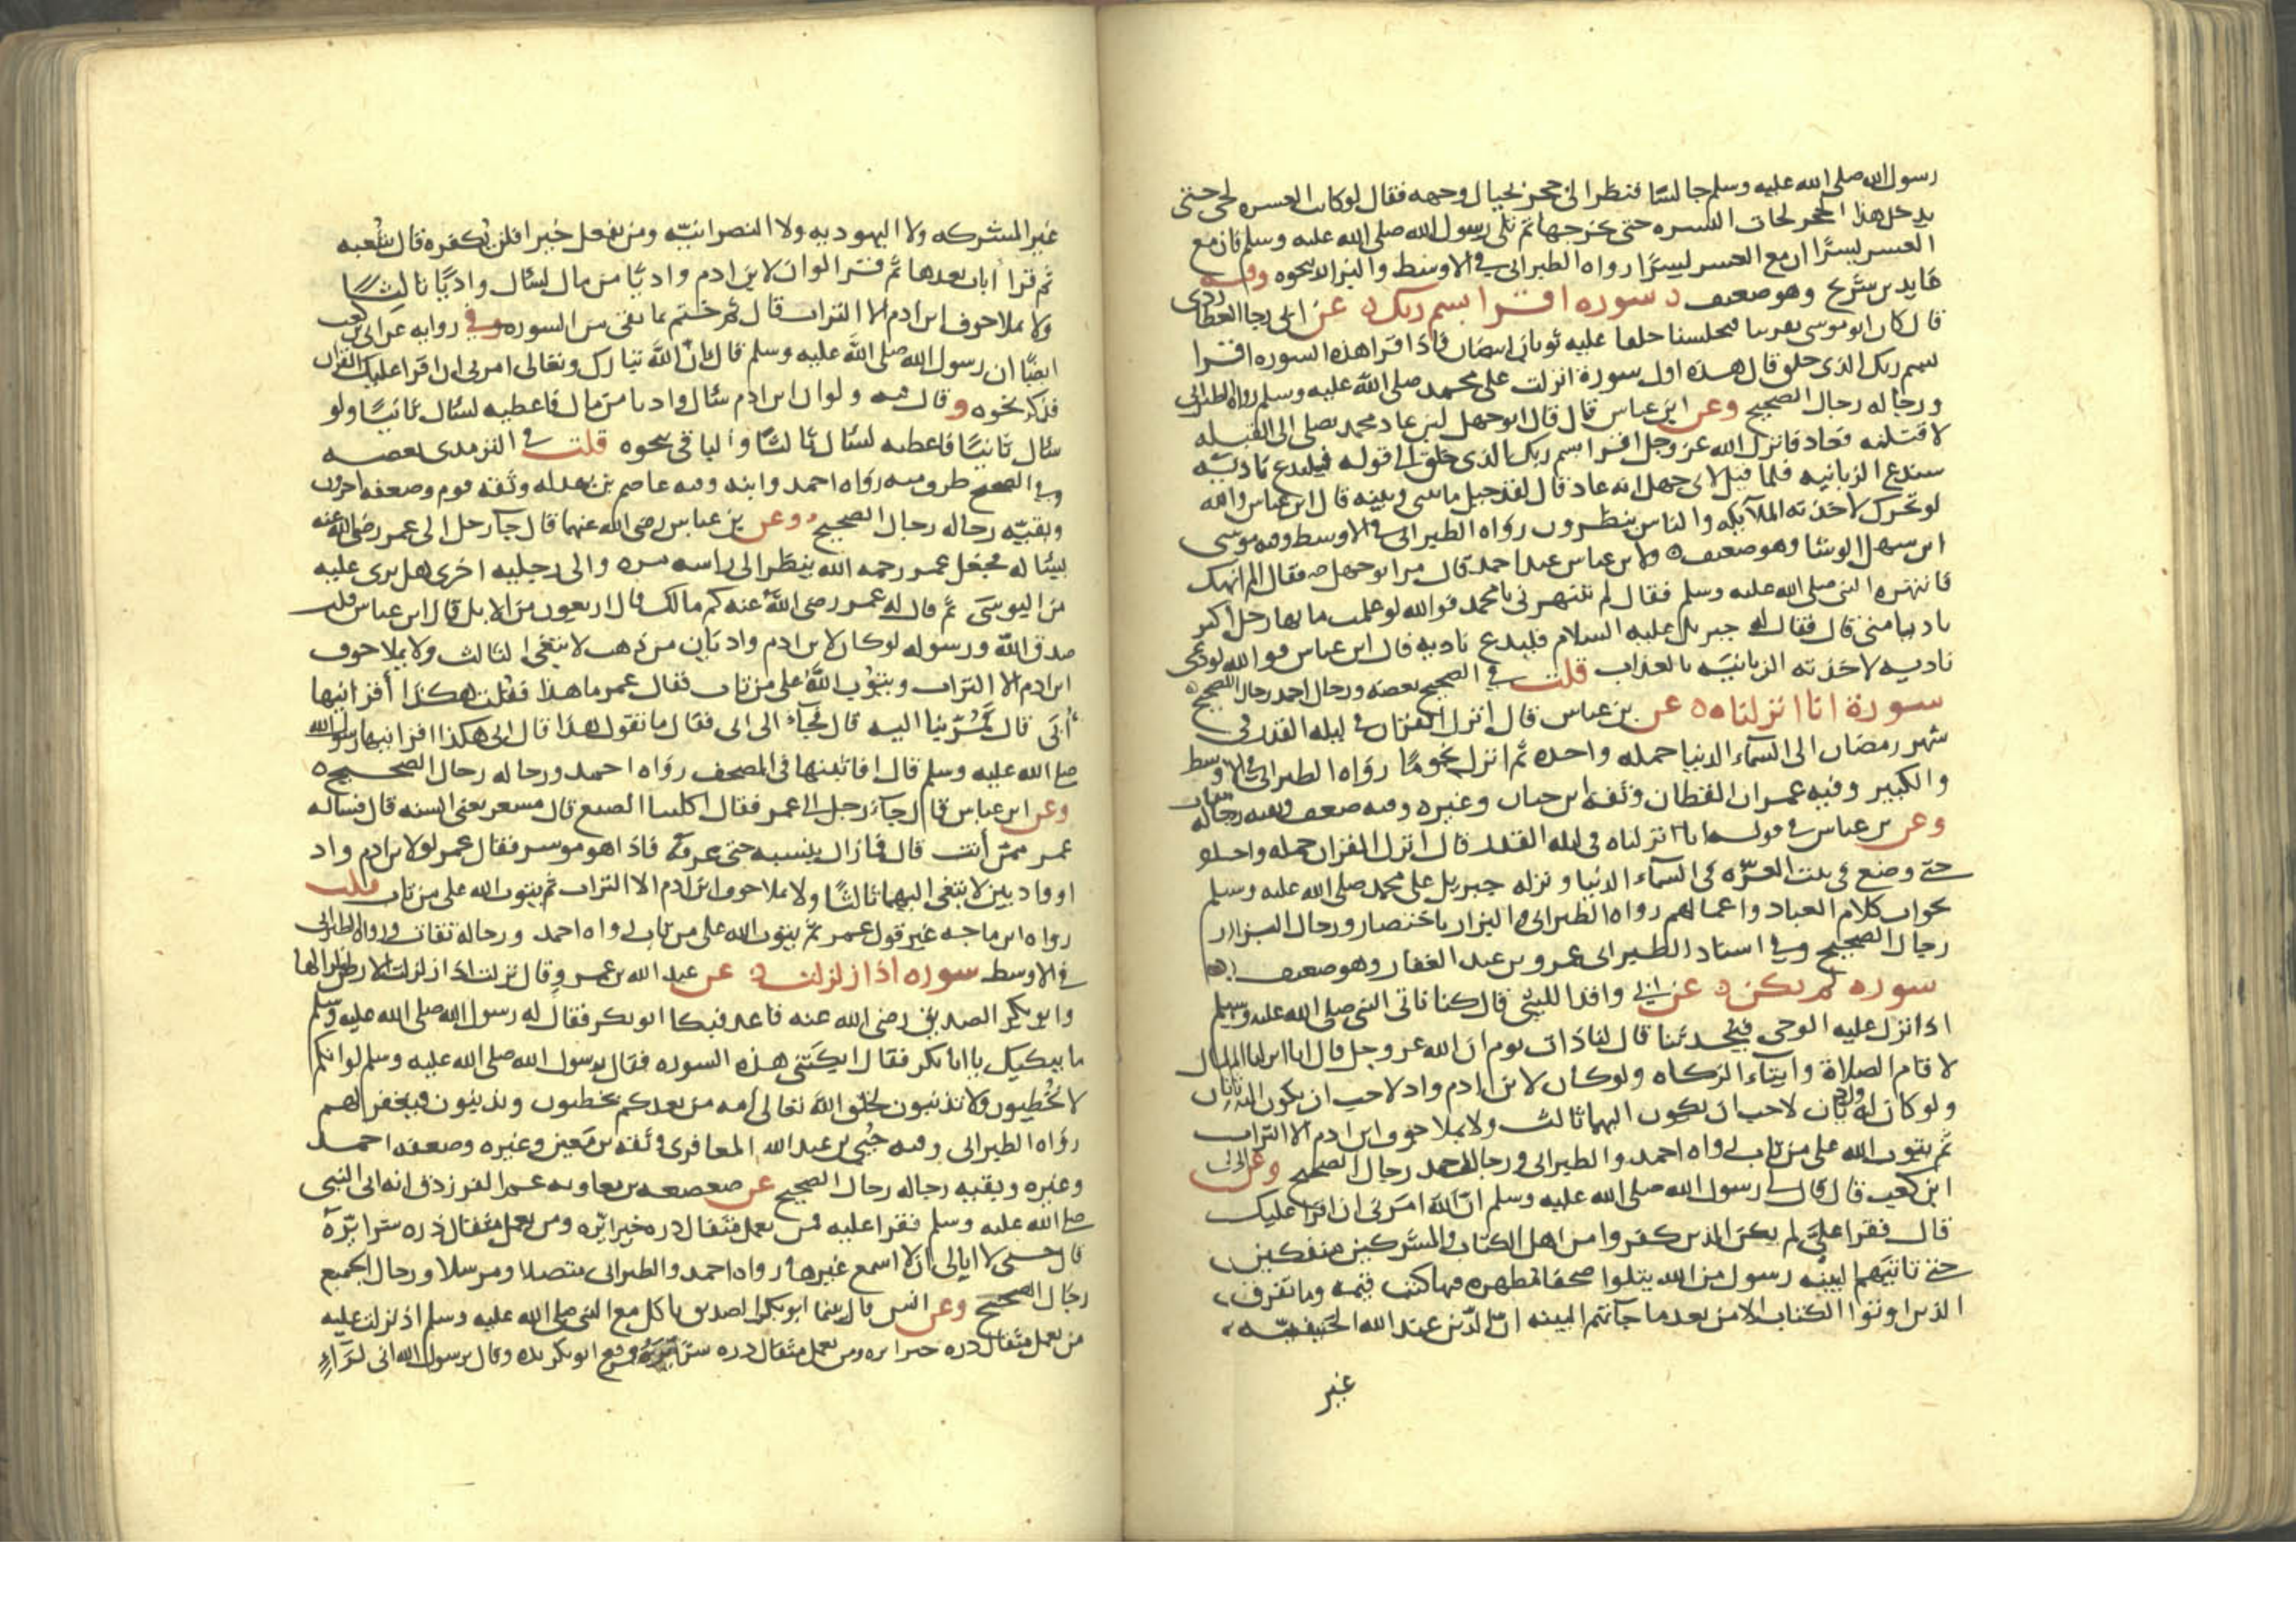 رسول الله صلى الله عليه وسلم جالسًا فنظر الى حجر بحيال وجهه فقال لوكانت العسره تجى حتى
يدخل هذا الحجر لجات اليسره حتى تخرجها ثم تلى رسول الله صلى الله عليه وسلم فان مع
العسر يسرًا ان مع العسر يسرًا رواه الطبرانى فى الاوسط والبزار بنحوه وفيه
عايد بن شريح وهو ضعيف سوره اقرا بسم ربك عن ابى رجا العطاردى
قال كان ابو موسى يقرينا فيجلسنا حلقا عليه ثوبان ابيضان فاذا قرا هذه السوره اقرا
بسم ربك الذى خلق قال هذه اول سورة انزلت على محمد صلى الله عليه وسلم رواه الطبرانى
ورجاله رجال الصحيح وعن ابن عباس قال قال ابو جهل لين عاد محمد يصلى الى القبله
لاقتلنه فعاد فانزل الله عز وجل اقرا بسم ربك الذى خلق الى قوله فليدع ناديه
سندع الزبانيه فلما قيل لابى جهل انه عاد قال لقد حيل ما بينى وبينه قال ابن عباس والله
لو تحرك لاخذته الملآيكه والناس ينظرون رواه الطبرانى فى الاوسط وفيه موسى
ابن سهل الوشا وهو ضعيف ولابن عباس عند احمد قال مر ابو جهل فقال الم انهك
فانتهره النبى صلى الله عليه وسلم فقال لم تنتهرنى يا محمد فوالله لو علمت ما بها رجل اكبر
ناديا منى قال فقال له جبريل عليه السلام فليدع ناديه قال ابن عباس فوالله لو دعى
ناديه لاخذته الزبانيه بالعذاب قلت فى الصحيح بعضه ورجال احمد رجال الصحيح
سورة انا انزلناه عن بن عباس قال انزل القران فى ليله القدر فى
شهر رمضان الى السمآء الدنيا جمله واحده ثم انزل نجومًا رواه الطبرانى فى الاوسط
والكبير وفيه عمران القطان وثقه ابن حبان وغيره وفيه ضعف وبقيه رجاله ثقات
وعن بن عباس فى قوله انا انزلناه فى ليله القدر قال انزل القران جمله واحده
حتى وضع فى بيت العزّه فى السمآء الدنيا ونزله جبريل على محمد صلى الله عليه وسلم
بجواب كلام العباد واعمالهم رواه الطبرانى والبزار باختصار ورجال البزار
رجال الصحيح وفى اسناد الطبرانى عمرو بن عبد الغفار وهو ضعيف
سوره لم يكن عن ابى واقد الليثى قال كنا ناتى النبى صلى الله عليه وسلم
اذا نزل عليه الوحى فيحدثنا قال لنا ذات يوم ان الله عز وجل قال انا انزلنا المال
لاقام الصلاة وايتاء الزكاه ولوكان لابن ادم واد لاحب ان يكون اليه ثان
ولو كان له واديان لاحب ان يكون اليهما ثالث ولا يملا جوف ابن ادم الا التراب
ثم يتوب الله على من تاب رواه احمد والطبرانى ورجال احمد رجال الصحيح وعن ابى
ابن كعب قال قال لى رسول الله صلى الله عليه وسلم ان الله امرنى ان اقرا عليك
قال فقرا علىّ لم يكن الذين كفروا من اهل الكتاب والمشركين منفكين
حتى تاتيهم البينه رسول من الله يتلوا صحفا مطهره فيها كتب قيمه وما تفرق
الذين اوتوا الكتاب الا من بعد ما جآتهم البينه ان الدين عند الله الحنيفيه
غير
غير المشركه ولا اليهوديه ولا النصرانيه ومن يفعل خيرا فلن يكفره قال شعبه
ثم قرا ايات بعدها ثم قرا لو ان لابن ادم واديًا من مال لسال واديًا ثالثًا
ولا يملا جوف ابن ادم الا التراب قال ثم ختم ما بقى من السوره وفى روايه عن ابى بن كعب
ايضًا ان رسول الله صلى الله عليه وسلم قال ان الله تبارك وتعالى امرنى ان اقرا عليك القران
فذكر نحوه وقال فيه ولو ان ابن ادم سال واديا من مال فاعطيه لسال ثانيًا ولو
سال ثانيًا فاعطيه لسال ثالثًا والباقى بنحوه قلت فى الترمذى بعضه
وفى الصحيح طرف منه رواه احمد وابنه وفيه عاصم بن بهدله وثقه قوم وضعفه اخرون
وبقيه رجاله رجال الصحيح وعن بن عباس رضى الله عنهما قال جآ رجل الى عمر رضى الله عنه
يساله فجعل عمر رحمه الله ينظر الى راسه مره والى رجليه اخرى هل يرى عليه
من البوسى ثم قال له عمر رضى الله عنه كم مالك قال اربعون من الابل قال ابن عباس قلت
صدق الله ورسوله لوكان لابن ادم واديان من ذهب لابتغى الثالث ولا يملا جوف
ابن ادم الا التراب ويتوب الله على من تاب فقال عمر ما هذا فقلت هكذا اقرانيها
أبى قال فمر بنا اليه قال فجاء الى ابى فقال ما تقول هذا قال ابى هكذا اقرانيها رسول الله
صلى الله عليه وسلم قال افاثبتها فى المصحف رواه احمد ورجاله رجال الصحيح
وعن ابن عباس قال جآء رجل الى عمر فقال اكلتنا الضبع قال مسعر يعنى السنه قال فساله
عمر ممن أنت قال فما زال ينسبه حتى عرفه فاذا هو موسر فقال عمر لو لابن ادم واد
او واديين لابتغى اليهما ثالثًا ولا يملا جوف ابن ادم الا التراب ثم يتوب الله على من تاب قلت
رواه ابن ماجه غير قول عمر ثم يتوب الله على من تاب رواه احمد ورجاله ثقات ورواه الطبرانى
فى الاوسط سوره اذا زلزلت عن عبد الله بن عمرو قال نزلت اذا زلزلت الارض زلزالها
وابو بكر الصديق رضى الله عنه قاعد فبكا ابو بكر فقال له رسول الله صلى الله عليه وسلم
ما يبكيك يا ابا بكر فقال ابكتنى هذه السوره فقال رسول الله صلى الله عليه وسلم لو انكم
لا تخطيون ولا تذنبون لخلق الله تعالى امه من بعدكم يخطيون ويذنبون فيغفر لهم
رواه الطبرانى وفيه حُيى بن عبد الله المعافرى وثقه بن معين وغيره وضعفه احمد
وغيره وبقيه رجاله رجال الصحيح عن صعصعه بن معاويه عم الفرزدق انه اتى النبى
صلى الله عليه وسلم فقرا عليه فمن يعمل مثقال ذره خيرا يره ومن يعمل مثقال ذره شرا يره
قال حسبى لا ابالى ان لا اسمع غيرها رواه احمد والطبرانى متصلا ومرسلا ورجال الجميع
رجال الصحيح وعن انس قال بينما ابو بكر الصديق ياكل مع النبى صلى الله عليه وسلم اذ نزلت عليه
من يعمل مثقال ذره خيرا يره ومن يعمل مثقال ذره شرًا يره فرفع ابو بكر يده وقال يرسول الله انى لرآء